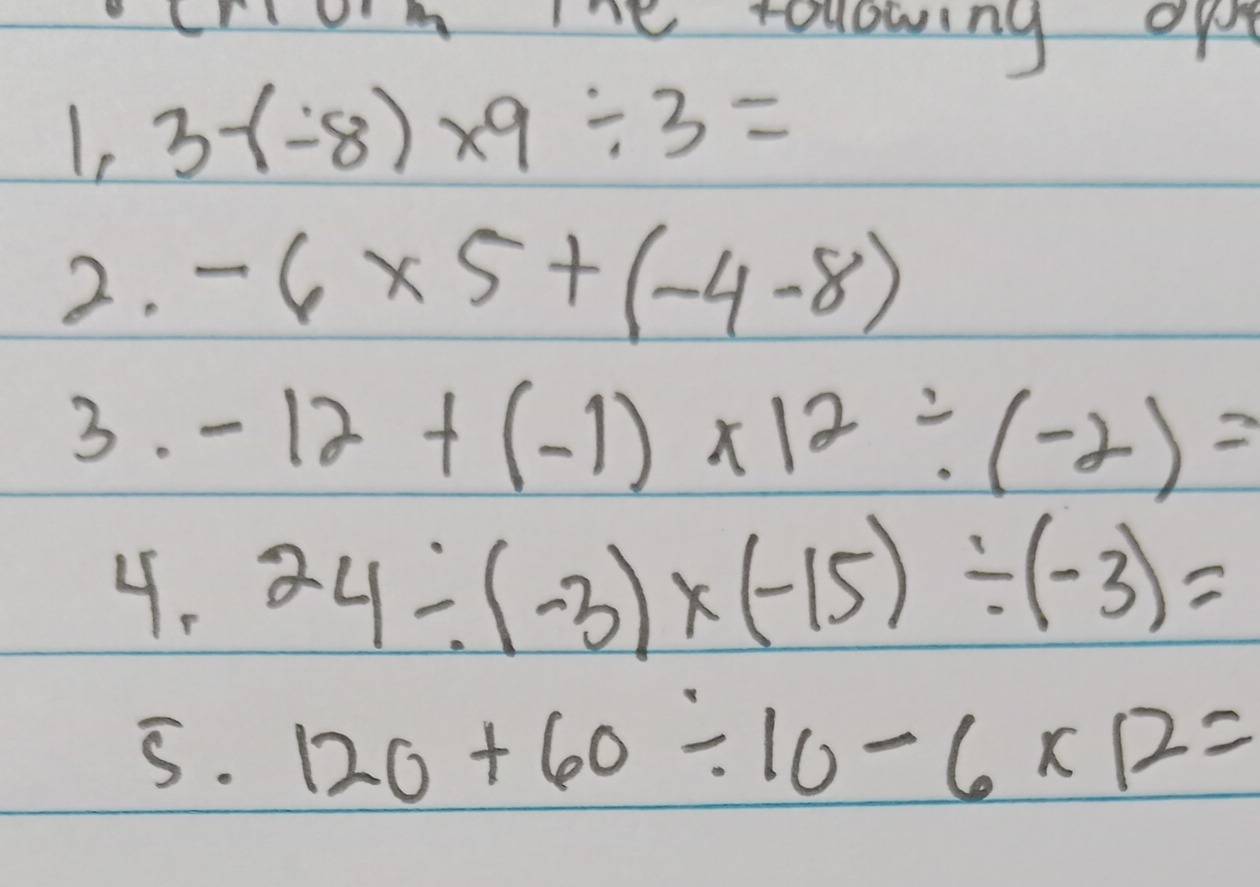 Perform the following ope
1. 3-(-8) × 9 ÷ 3 =
2. -6 × 5 + (-4 - 8)
3. -12 + (-1) × 12 ÷ (-2) =
4. 24 ÷ (-3) × (-15) ÷ (-3) =
5. 120 + 60 ÷ 10 - 6 × 12 =